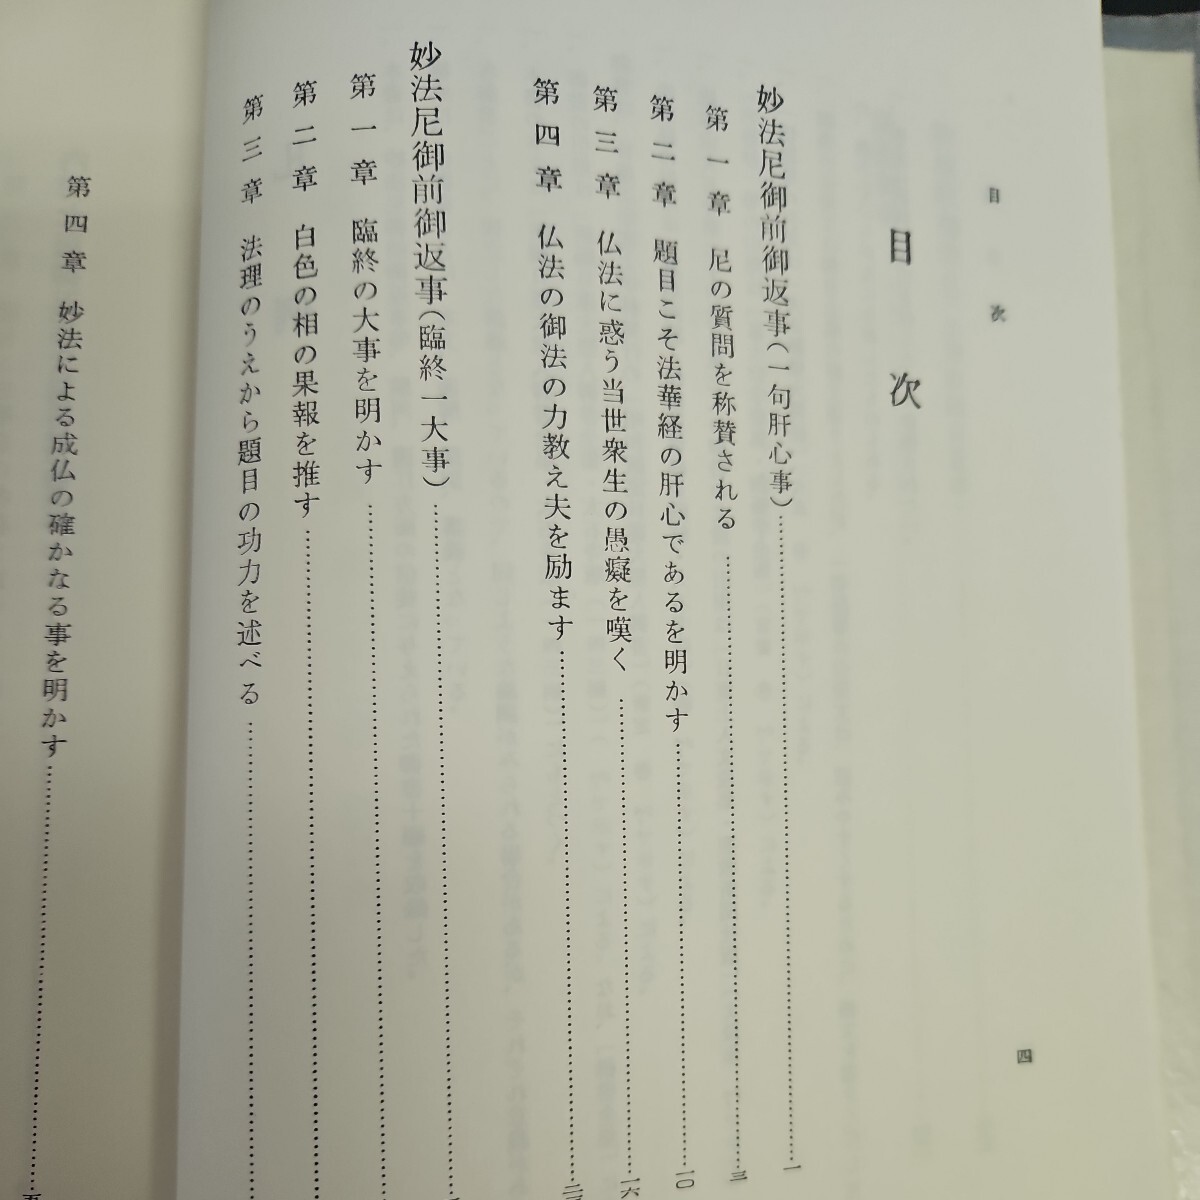 目次
四
目次
妙法尼御前御返事(一句肝心事)……一
第一章 尼の質問を称賛される……三
第二章 題目こそ法華経の肝心であるを明かす……一〇
第三章 仏法に惑う当世衆生の愚癡を嘆く……一六
第四章 仏法の御法の力教え夫を励ます……二
妙法尼御前御返事(臨終一大事)……
第一章 臨終の大事を明かす……
第二章 白色の相の果報を推す……
第三章 法理のうえから題目の功力を述べる……
第四章 妙法による成仏の確かなる事を明かす……五